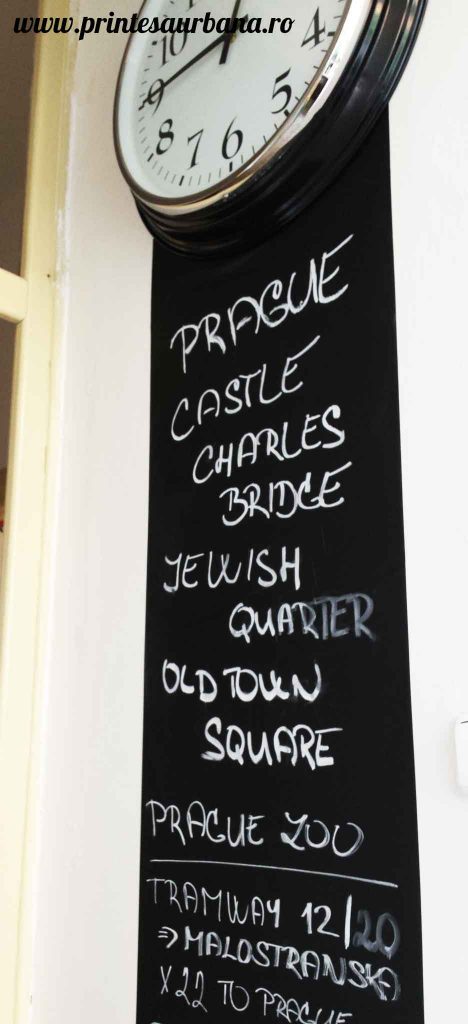 www.printesaurbana.ro
10
4
9
5
8
7
6
PRAGUE
CASTLE
CHARLES
BRIDGE
JEWISH
QUARTER
OLD TOWN
SQUARE
PRAGUE ZOO
TRAMWAY 12/20
⇒ MALOSTRANSKA
X 22 TO PRAGUE